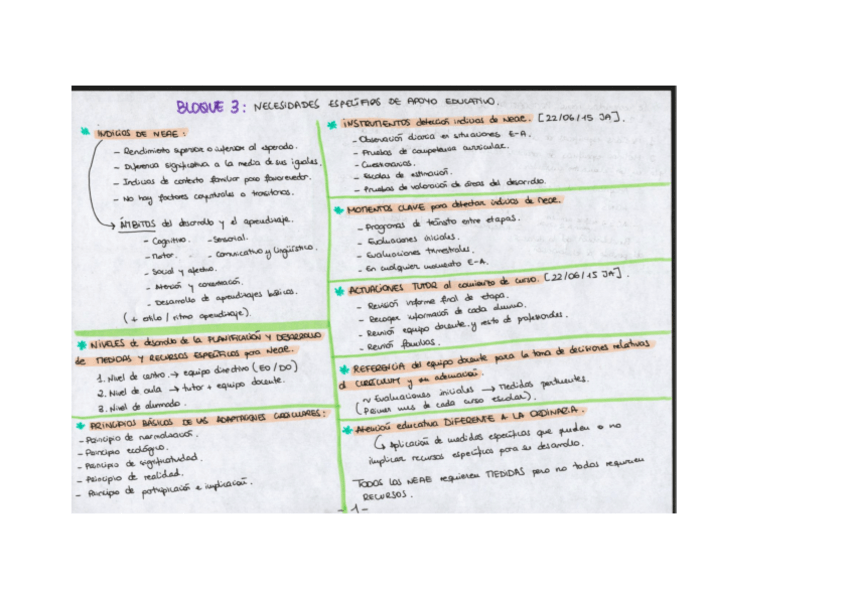 BLOQUE 3: NECESIDADES ESPECÍFICAS DE APOYO EDUCATIVO.
INDICIOS DE NEAE:
- Rendimiento superior o inferior al esperado.
- Diferencia significativa a la media de sus iguales.
- Indicios de contexto familiar poco favorecedor.
- No hay factores coyunturales o transitorios.
ÁMBITOS del desarrollo y el aprendizaje.
- Cognitivo. - Sensorial.
- Motor. - Comunicativo y Lingüístico.
- Social y afectivo.
- Atención y concentración.
- Desarrollo de aprendizajes básicos.
(+ estilo / ritmo aprendizaje).
NIVELES de desarrollo de la PLANIFICACIÓN Y DESARROLLO
de MEDIDAS Y RECURSOS ESPECÍFICOS para NEAE.
1. Nivel de centro. → equipo directivo (EO/DO)
2. Nivel de aula → tutor + equipo docente.
3. Nivel de alumnado.
PRINCIPIOS BÁSICOS DE LAS ADAPTACIONES CURRICULARES:
- Principio de normalización.
- Principio ecológico.
- Principio de significatividad.
- Principio de realidad.
- Principio de participación e implicación.
INSTRUMENTOS detección indicios de Neae. [22/06/15 JA].
- Observación diaria en situaciones E-A.
- Pruebas de competencia curricular.
- Cuestionarios.
- Escalas de estimación.
- Pruebas de valoración de áreas del desarrollo.
MOMENTOS CLAVE para detectar indicios de neae.
- Programas de tránsito entre etapas.
- Evaluaciones iniciales.
- Evaluaciones trimestrales.
- En cualquier momento E-A.
ACTUACIONES TUTOR al comienzo de curso. [22/06/15 JA].
- Revisión informe final de etapa.
- Recoger información de cada alumno.
- Reunión equipo docente y resto de profesionales.
- Reunión familias.
REFERENCIA del equipo docente para la toma de decisiones relativas
al CURRÍCULUM y su adecuación.
Evaluaciones iniciales → Medidas pertinentes.
(Primer mes de cada curso escolar).
Atención educativa DIFERENTE A LA ORDINARIA.
↳ Aplicación de medidas específicas que pueden o no
implicar recursos específicos para su desarrollo.
TODOS LOS NEAE requieren MEDIDAS pero no todos requieren
RECURSOS.
-1-